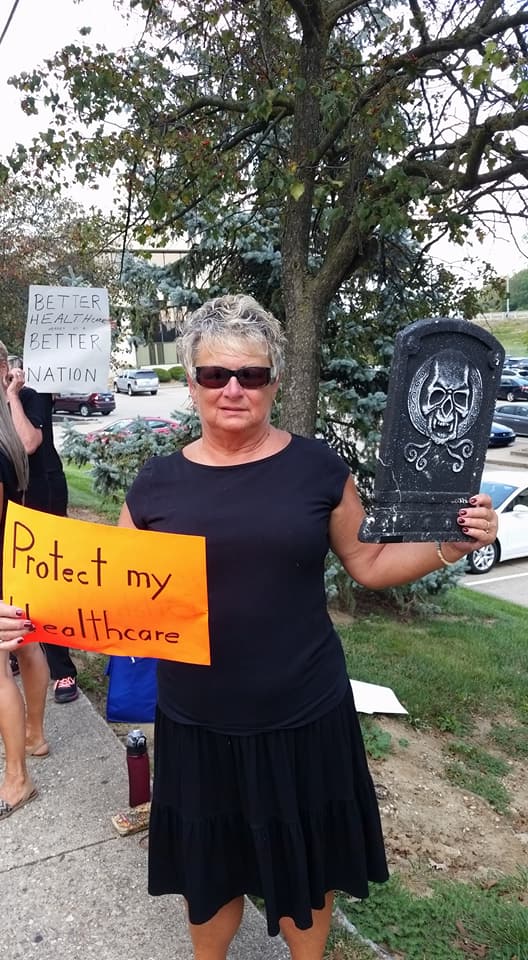 BETTER
HEALTHCARE
BETTER
NATION
Protect my
Healthcare